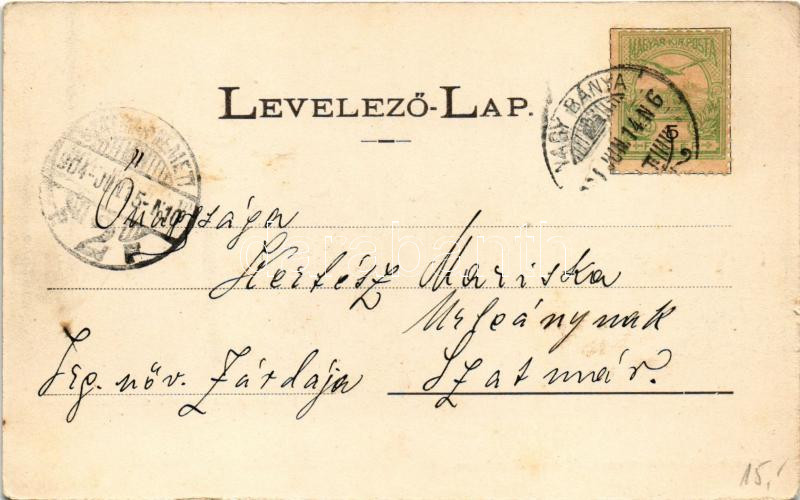 MAGYAR KIR. POSTA
LEVELEZŐ-LAP.
NAGY BÁNYA
904 JUN 14 N 6
5
904-JUN 15-N
Önagysága
Kertész Mariska
Urleánynak
Irg. növ. Zárdája Szatmár.
15.
darabanth